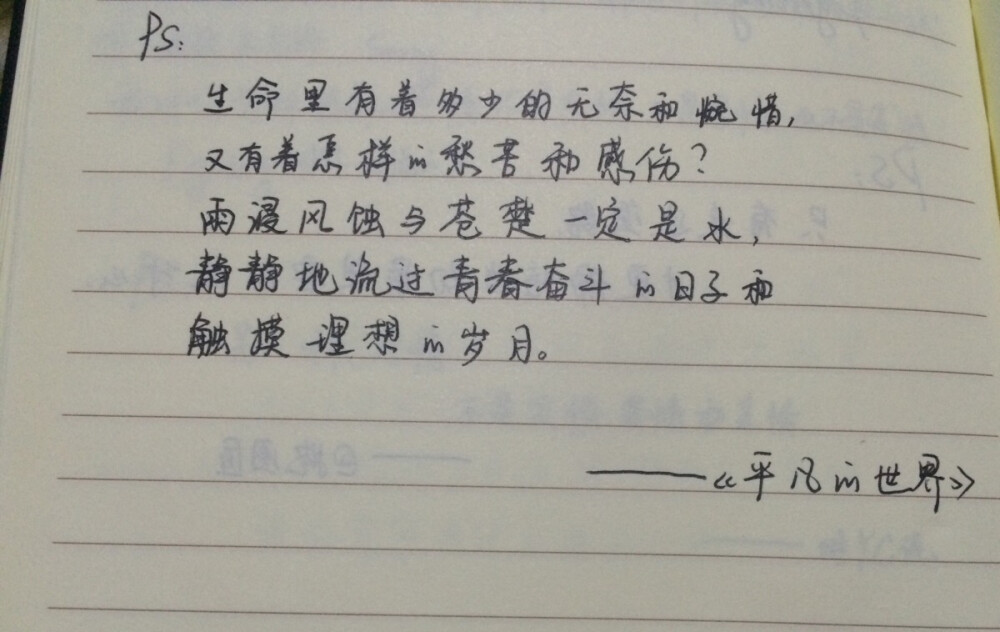 PS:
生命里有着多少的无奈和惋惜,
又有着怎样的愁苦和感伤?
雨浸风蚀与苍楚一定是水,
静静地流过青春奋斗的日子和
触摸理想的岁月。
——《平凡的世界》